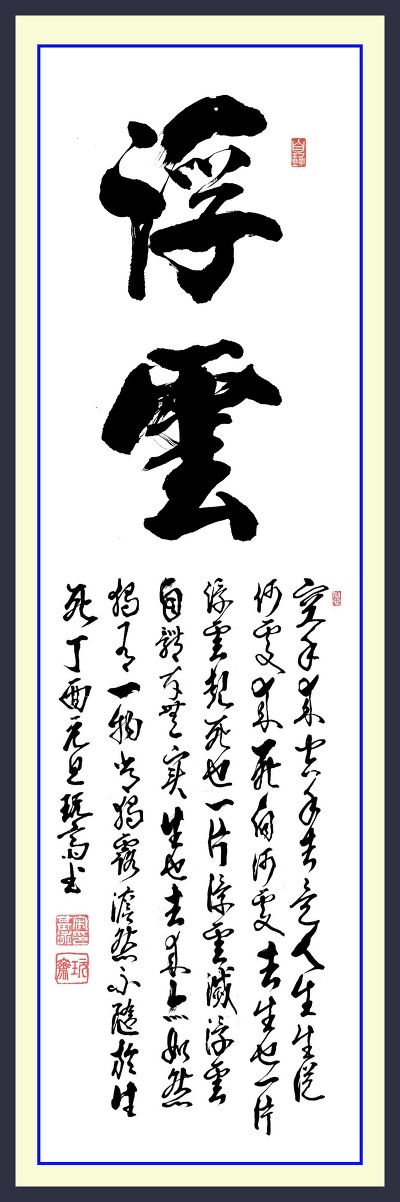 浮雲
空手來空手去是人生生從
何處來死向何處去生也一片
浮雲起死也一片浮雲滅浮雲
自體本無實生也去來亦如然
獨有一物常獨露澹然不隨於生
死丁酉元旦玩齋書